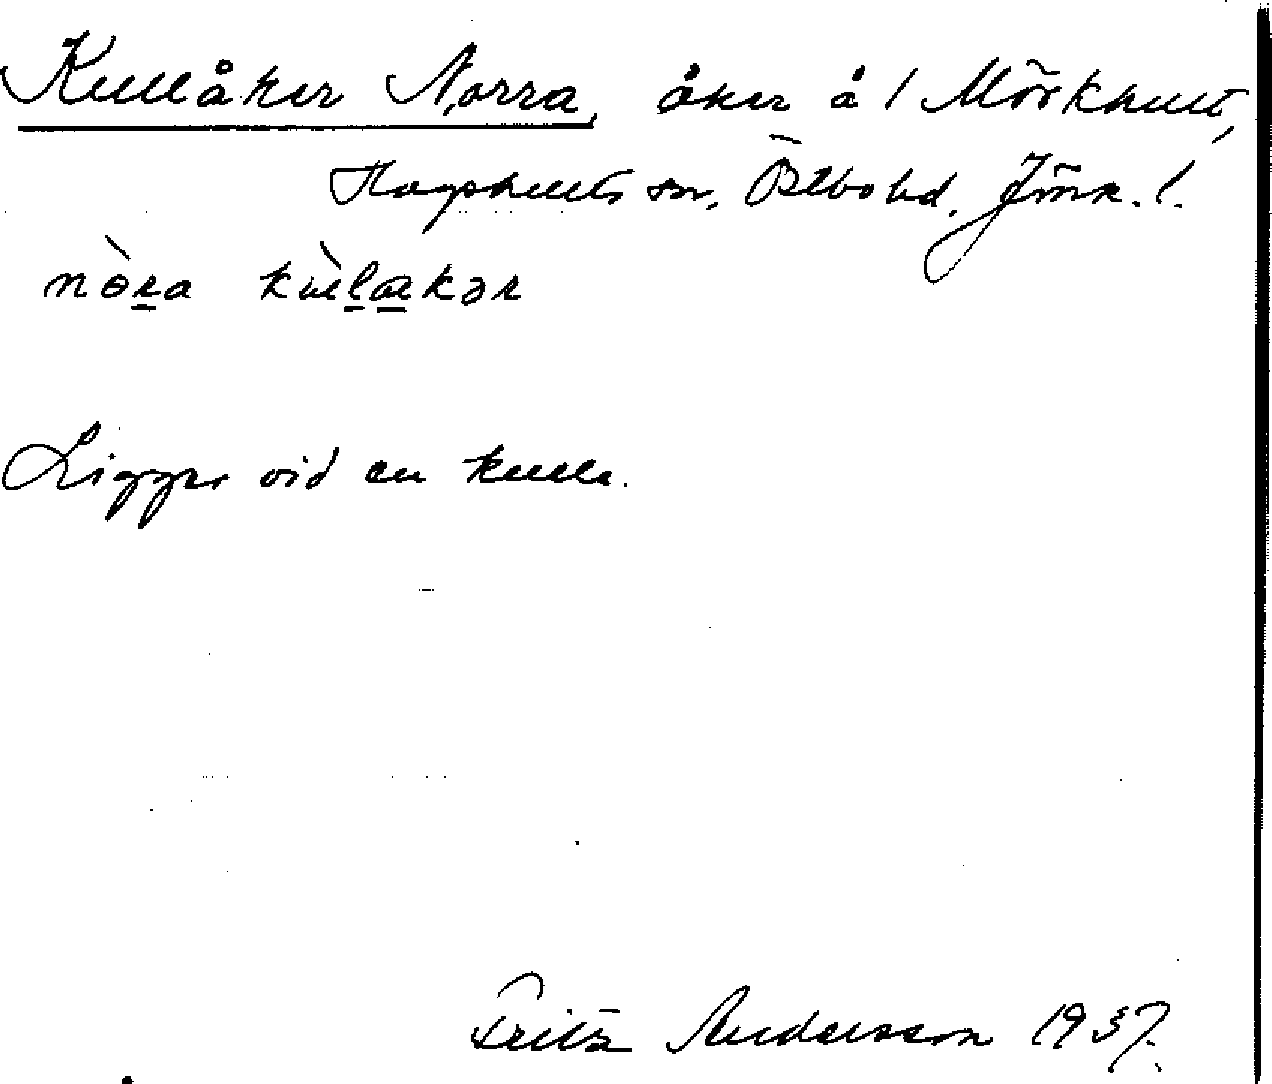 Kullåker Norra, åker å 1 Mörkhult,
Hagshults sn, Östbo hd. Jönk. l.
nòra kùlakər
Ligger vid en kulle.
Fritz Andersson 1937.